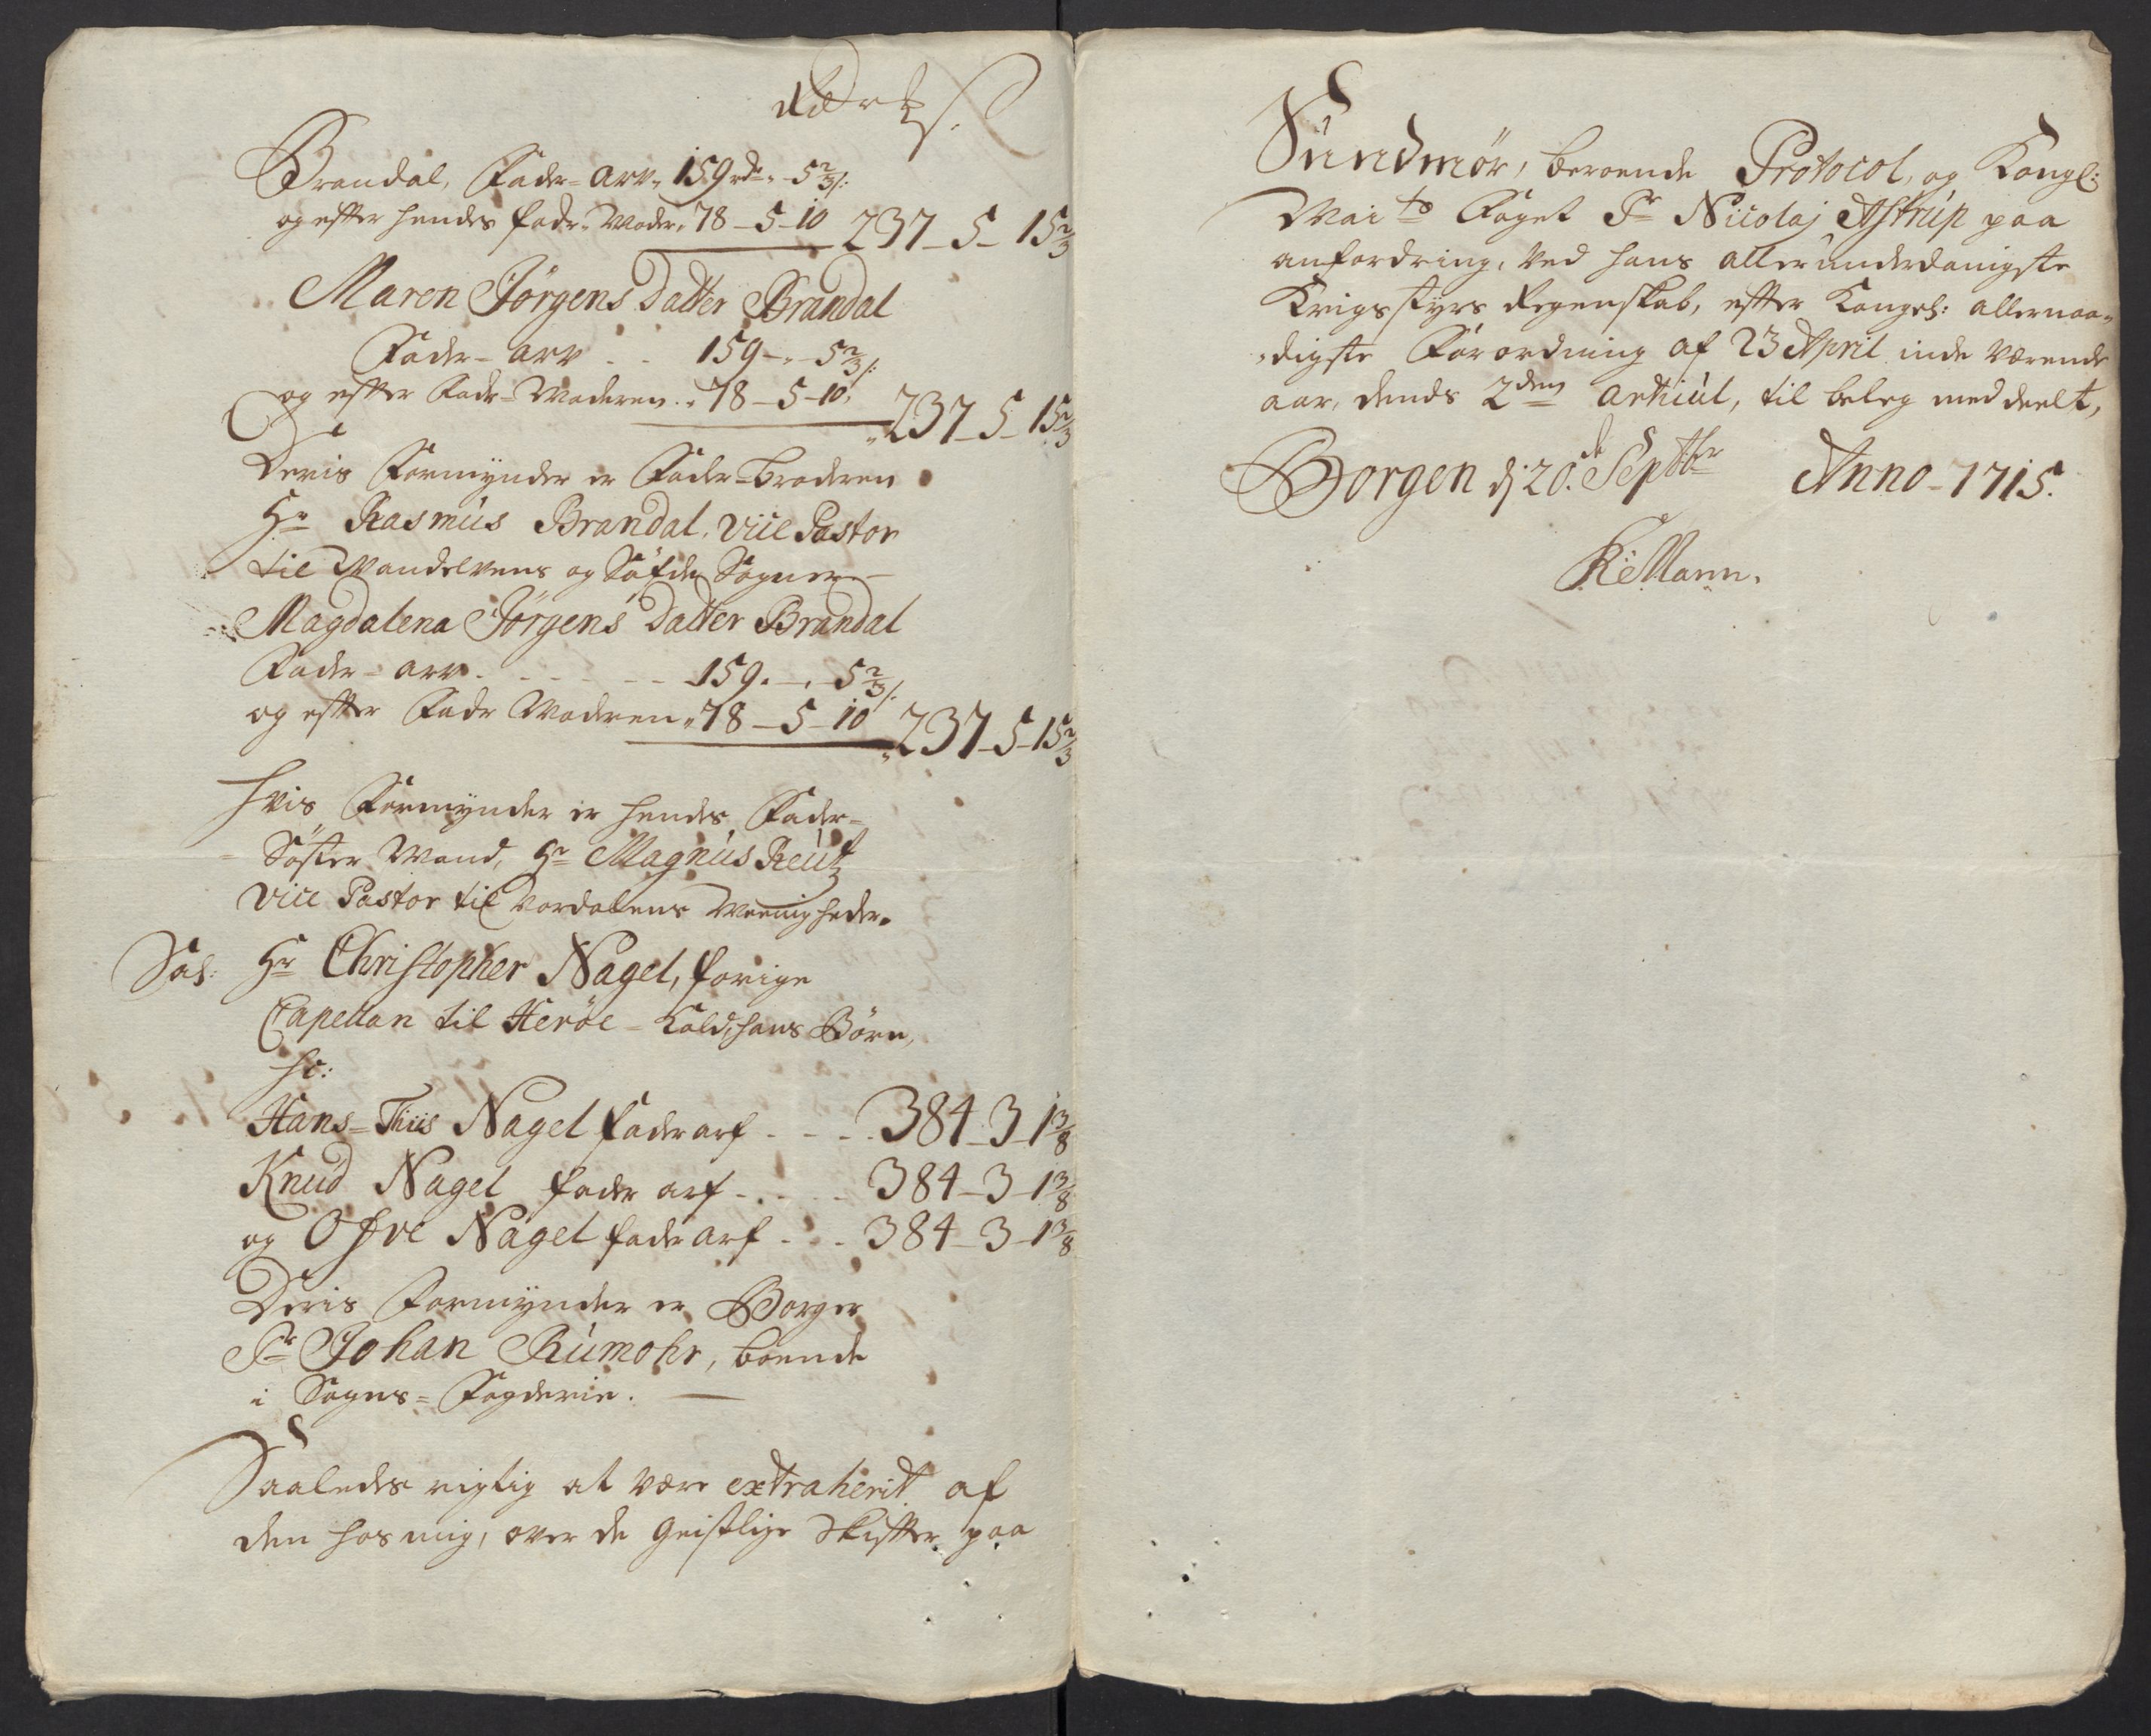 Rd ort s.
Brandal, Fader-arv, 159 rdr „ - 5 2/3 s:
og effter hendes fader-Moder, 78 - 5 - 10 237 - 5 - 15 2/3
Maren Jörgens Datter Brandal
Fader-arv - - 159 - „ - 5 2/3 s:
og effter Fader-Moderen „ 78 - 5 - 10 „ 237 - 5 - 15 2/3
Deris Formynder er Fader-broderen
Hr Rasmus Brandal, vice Pastor
til Wandelvens og Söfde Sogner -
Magdalena Jörgens Datter Brandal
Fader-arv - - - - 159 „ - „ 5 2/3 s:
og effter Fader Moderen „ 78 - 5 - 10 „ 237 - 5 - 15 2/3
Hvis Formynder er hendes Fader-
Söster Mand, Hr Magnus Reutz
vice Pastor til Nordalens Meenigheder.
Sal: Hr Christopher Nagel, forige
Capellan til Heröe-Kald, hans Börn,
sc:
Hans-Thiis Nagel faderarf - - - - 384 - 3 - 1 3/8
Knud Nagel fader arf - - - - 384 - 3 - 1 3/8
og Ofve Nagel fader arf - - - 384 - 3 - 1 3/8
Deris Formynder er Borger
Sr Johan Rumohr, boende
i Sogns-Fogderie. -
Saaledes rigtig at være extraherit af
den hos mig, over de Geistlige Skiffter paa
Sundmör, beroende Protocol, og Kongl:
Maits Foget Sr Nicolaj Astrup paa
anfordring, ved hans allerunderdanigste
Krigsstyrs Regenskab, effter Kongel: allernaa-
-digste Forordning af 23 April inde værende
aar, dends 2den Articul, til beleg meddeelt,
Borgen dj 20de Septbr Anno - 1715.